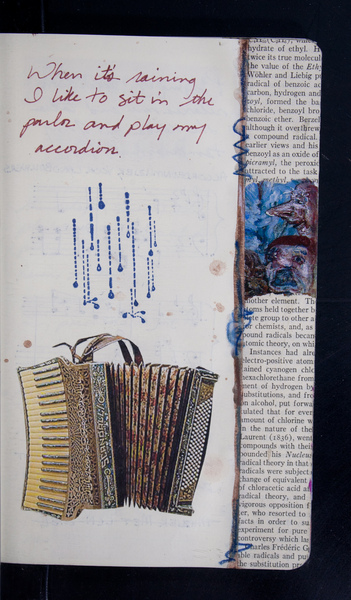 When it's raining
I like to sit in the
parlor and play my
accordion.
hydrate of ethyl.
twice its true molecul
the value of the Eth
Wöhler and Liebig p
radical of benzoic ac
carbon, hydrogen and
formed the ba
chloride, benzoyl bro
benzoic ether. Berzel
although it overthrew
compound radical.
earlier views and his
benzoyl as an oxide of
the peroxide
attracted to the task
another element. Th
held together b
group to other a
chemists, and, as
pound radicals becam
tomic theory, on whi
Instances had alr
electro-positive atom
ained cyanogen chlo
hexachlorethane from
ment of hydrogen by
substitutions, and fro
on alcohol, put forwa
ulated that for ever
amount of chlorine w
in the nature of the
Laurent (1836), went
compounds with thei
pounded his Nucleus
radical theory in that
radicals were subject
change of equivalent
of chloracetic acid a
radical theory, and
vigorous opposition f
er, who resorted to
facts in order to su
experiment for pure
controversy which las
Charles Frédéric G
able radicals and pu
the substitution pr